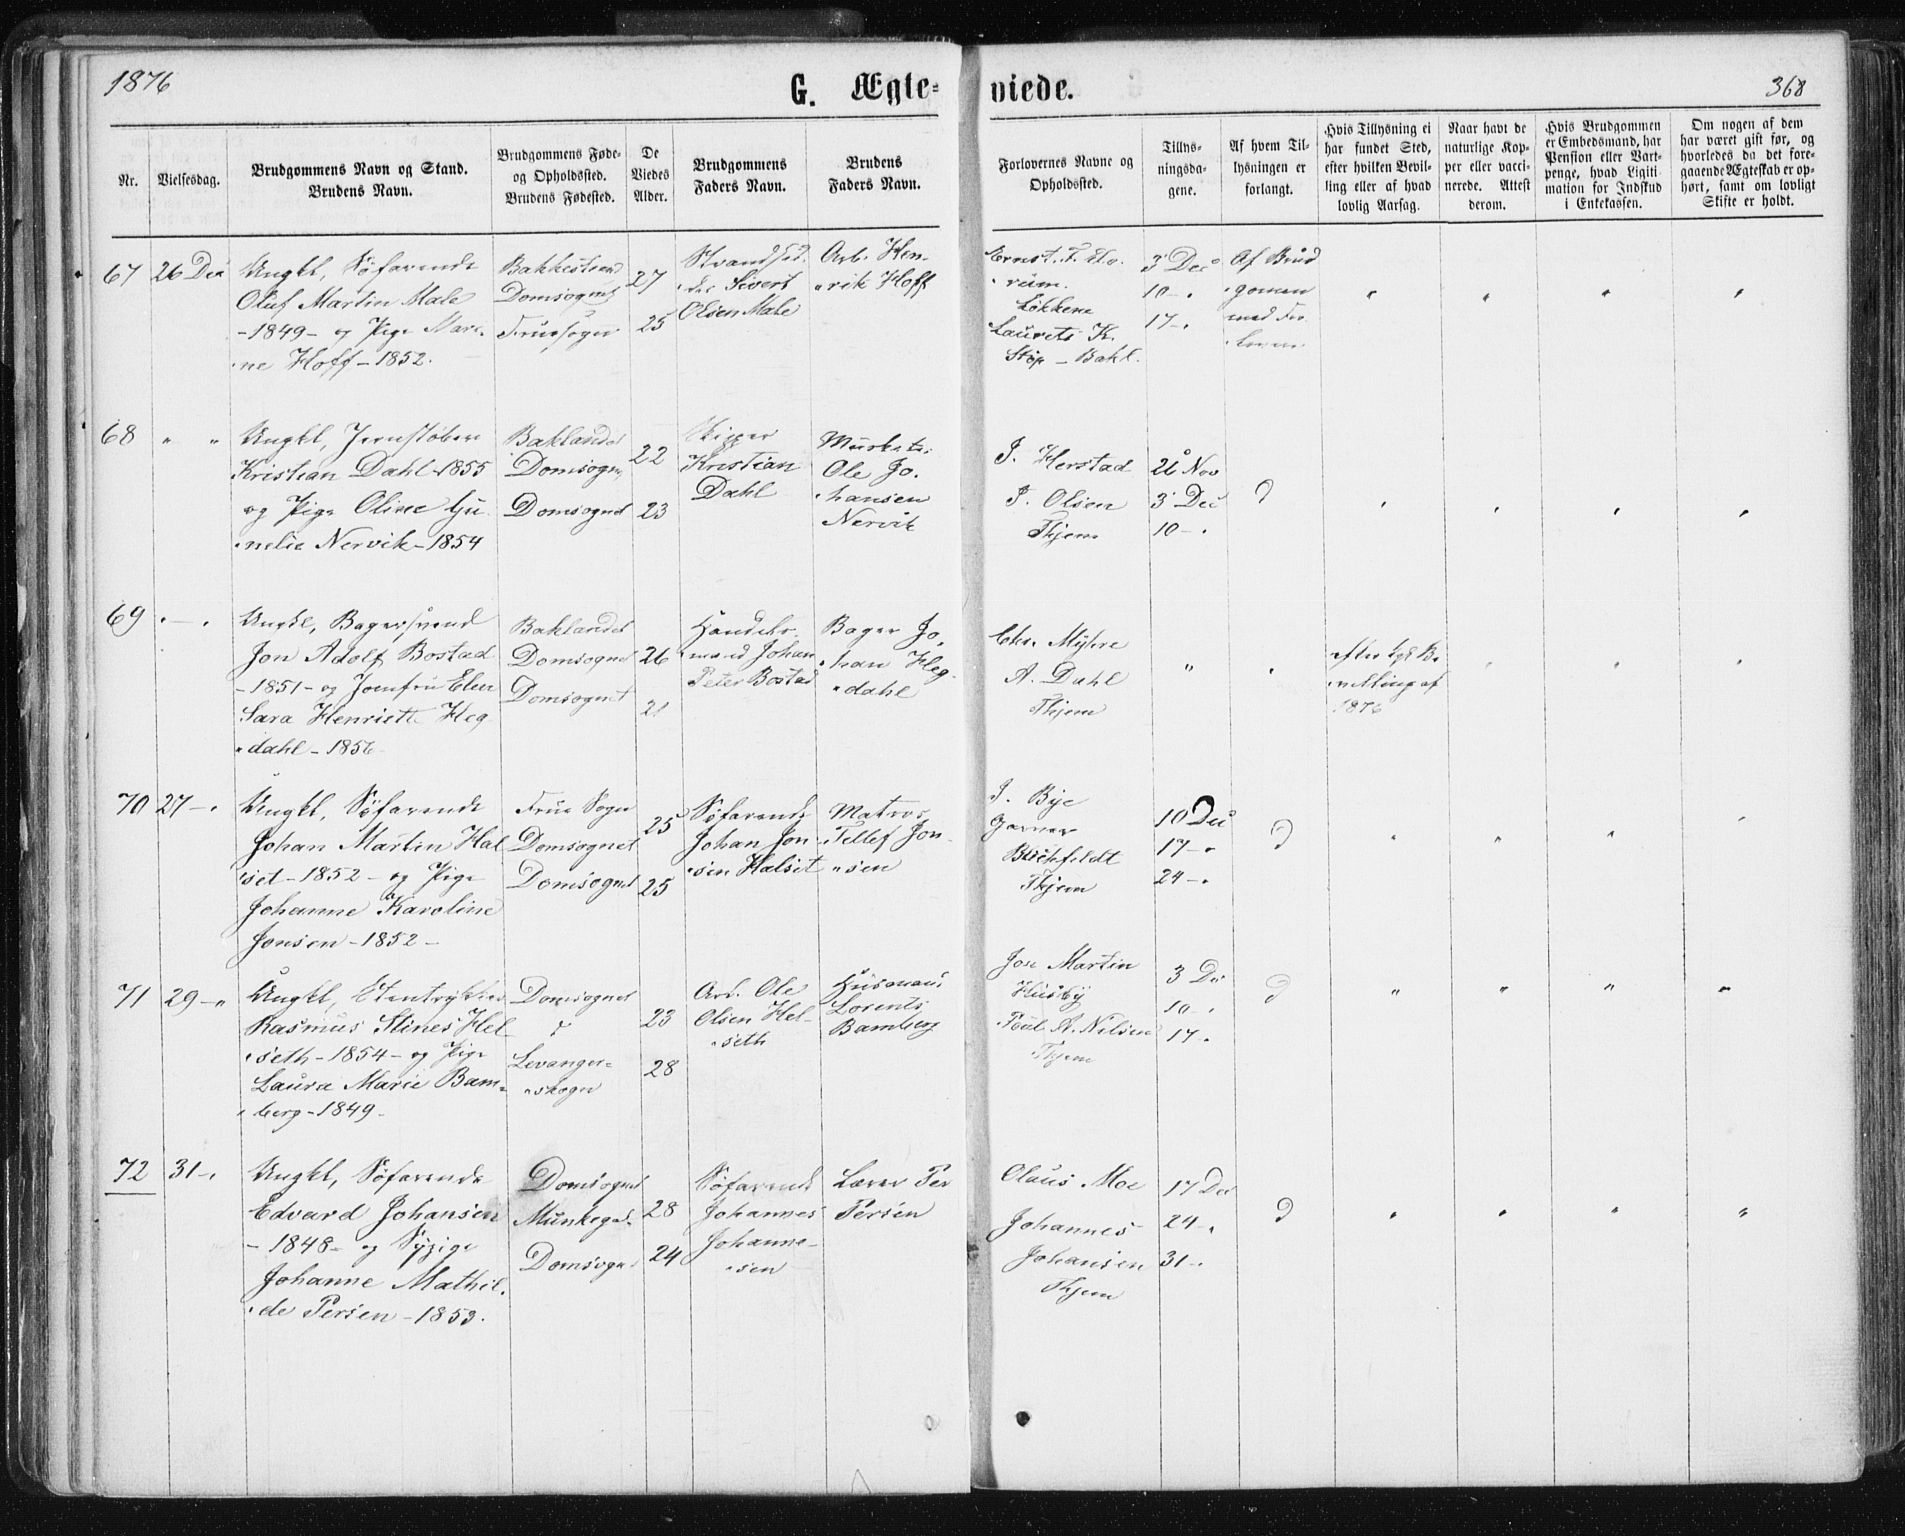 1876
G. Ægte-
viede.
368
Nr.
Vielsesdag.
Brudgommens Navn og Stand.
Brudens Navn.
Brudgommens Føde-
og Opholdssted.
Brudens Fødested.
De
Viedes
Alder.
Brudgommens
Faders Navn.
Brudens
Faders Navn.
Forlovernes Navne og
Opholdssted.
Tillys-
ningsda-
gene.
Af hvem Til-
lysningen er
forlangt.
Hvis Tillysning ei
har fundet Sted,
efter hvilken Bevil-
ling eller af hvad
lovlig Aarsag.
Naar havt de
naturlige Kop-
per eller vacci-
nerede. Attest
derom.
Hvis Brudgommen
er Embedsmand, har
Pension eller Vart-
penge, hvad Ligiti-
mation for Indskud
i Enkekassen.
Om nogen af dem
har været gift før, og
hvorledes da det fore-
gaaende Ægteskab er op-
hørt, samt om lovligt
Skifte er holdt.
67
26 Dec
Ungkl, Søfarende
Oluf Martin Male
-1849- og Pige Mare-
ne Hoff-1852.
Bakkestrand
Domsognet
Fruesogn
27
25
Sivert
Olsen Male
Arb. Hen-
rik Hoff
Ernst. F.
Løkkene
Laurets K.
Bakl.
3 Dec
10 - "
17 - "
Af Brud
gomen
med For
68
" "
Ungkl, Jernstøber
Kristian Dahl-1855
og Pige Oline
nelie Nervik-1854
Baklandet
Domsogn
Domsognet
22
23
Skipper
Kristian
Dahl
Ole Jo.
hansen
Nervik
J. Herstad
J. Olsen
Thjem
26 Nov
3 Dec
10 - "
69
" - "
Ungkl, Bagersvend
Jon Adolf Bostad
-1851- og Jomfru Elen
Sara Henriette Heg
dahl-1856
Baklandet
Domsognet
Domsognet
26
21
Handels
mand Johan
Peter Bostad
Bager Jo,
han Heg-
dahl
Chr. Myhre
A. Dahl
Thjem
efter kgl Be
villing af
1876
70
27 - "
Ungkl, Søfarende
Johan Martin Hal
set-1852- og Pige
Johanne Karoline
Jonsen-1852-
Frue Sogn
Domsognet
Domsognet
25
25
Søfarende
Johan Jon
sen Halset
Matros
Tellef Jon-
sen
J. Bye
Garver
Thjem
10 Dec
17 - "
24 - "
71
29 - "
Ungkl, Stentrykker
Rasmus Stines Hel
seth-1854- og Pige
Laura Marie Bam-
berg-1849-
Domsognet
Levanger-
skogn
23
28
Arb. Ole
Olsen Hel-
seth
Husmand
Lorents
Bamberg
Jon Martin
Husby
Poul A. Nilsen
Thjem
3 Dec
10 - "
17 "
72
31 - "
Ungkl, Søfarende
Edvard Johansen
-1848- og Sypige
Johanne Mathil-
de Persen-1853.
Domsognet
Munkegad.
Domsognet
28
24
Søfarende
Johannes
Johanne-
sen
Lærer Per
Persen
Olaus Moe
Johannes
Johansen
Thjem
17 Dec
24 - "
31 - "